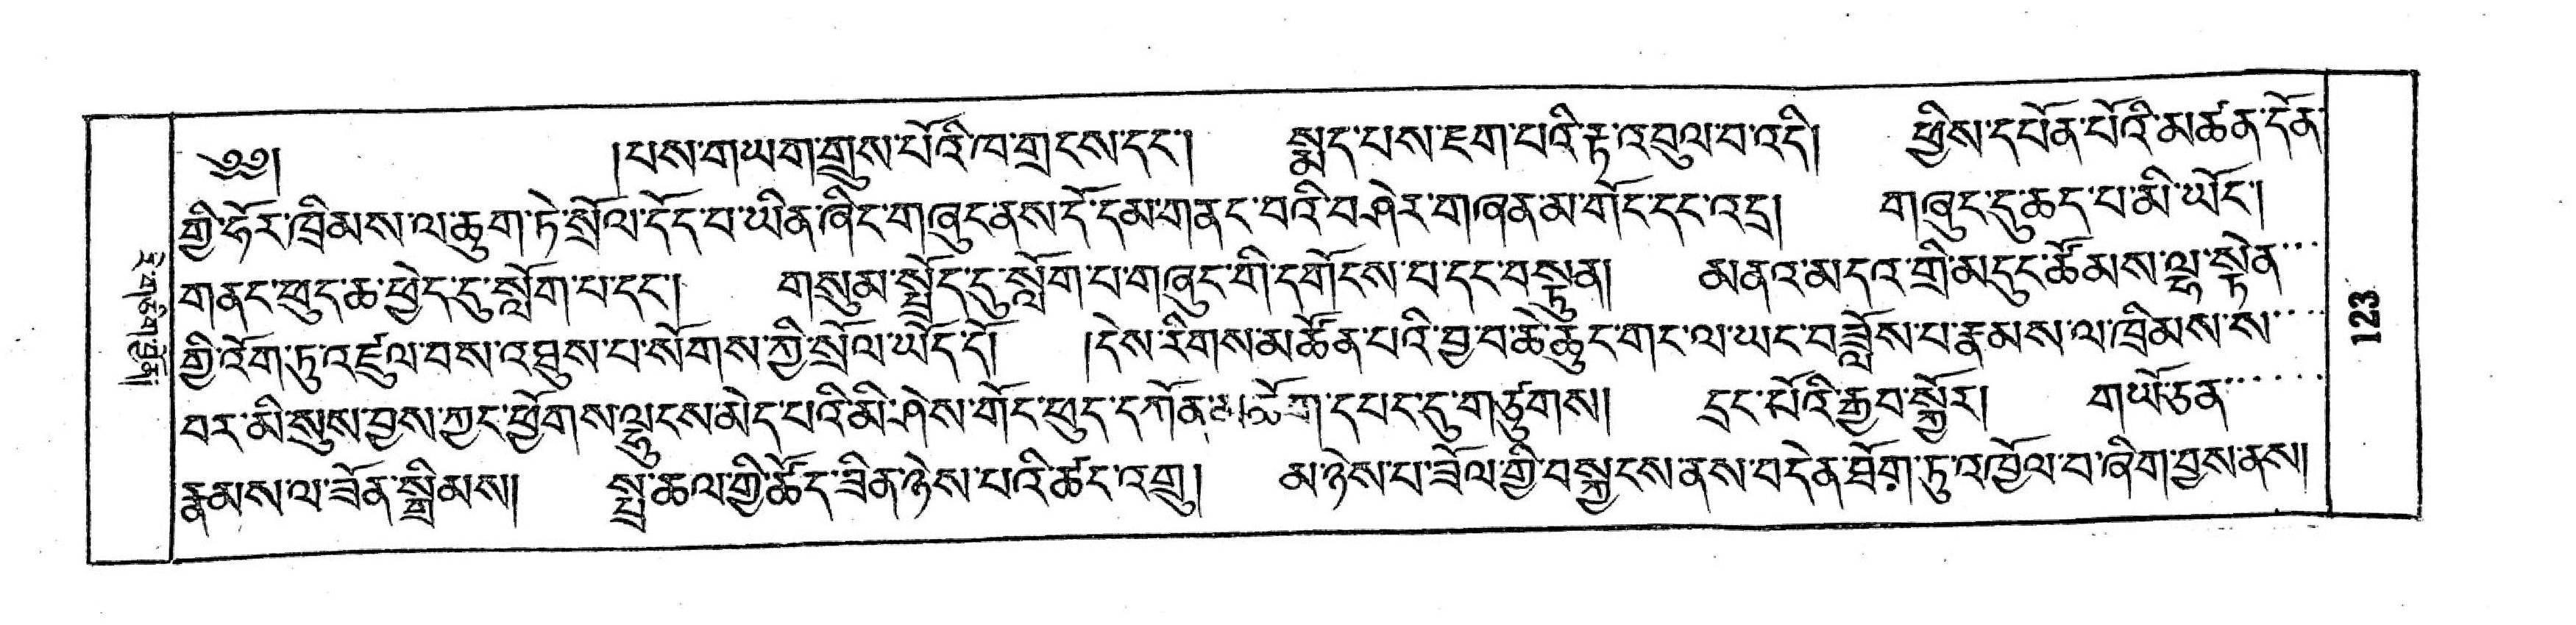 ༄༅།        །པས་གཡག་གྲུས་པོའི་ཁ་གྲངས་དང་།    སྨད་པས་ཇག་པའི་རྟ་འབུལ་བ་འདི།    ཕྱིས་དཔོན་པོའི་མཚན་དོན་
གྱི་ཧོར་ཁྲིམས་ལ་ཆུག་ཏེ་སྲོལ་དོད་པ་ཡིན་ཞིང་གཞུང་ནས་དོ་དམ་གནང་བའི་བཤེར་གཞན་མ་གོང་དང་འདྲ།    གཞུང་དུ་ཆད་པ་མི་ཡོང་།
གནང་ཕུད་ཆ་ཕྱེད་དུ་སློག་པ་དང་།    གསུམ་སྤྲོད་དུ་སློག་པ་གཞུང་གི་དགོངས་པ་དང་བསྟུན།    མནའ་མདའ་གྲི་མདུང་ཚོམས་ལྷ་སྟེན་
གྱི་འོག་ཏུ་འཛུལ་བས་འཐུས་པ་སོགས་ཀྱི་སྲོལ་ཡོད་དོ།    །དེས་རིགས་མཚོན་པའི་བྱ་བ་ཆེ་ཆུང་གང་ལ་ཡང་བཟློས་པ་རྣམས་ལ་ཁྲིམས་ས་
བར་མི་སུས་བྱས་ཀྱང་ཕྱོགས་ལྷུངས་མེད་པའི་མི་ཤེས་གོང་ཕུད་དཀོན་མཆོག་དཔང་དུ་གཙུགས།    དྲང་པོའི་རྒྱབ་སྐྱོར།    གཡོ་ཅན་
རྣམས་ལ་ཟོན་སྒྲིམས།    སྤྲ་ཆལ་གྱི་ཚོད་ཟིན་ཉེས་པའི་ཚང་འགྲུ།    མ་ཉེས་པ་ཟོལ་གྱི་བསྐྱངས་ནས་བདེན་ཐོག་ཏུ་འཁྱོལ་བ་ཞིག་བྱས་ནས།
123